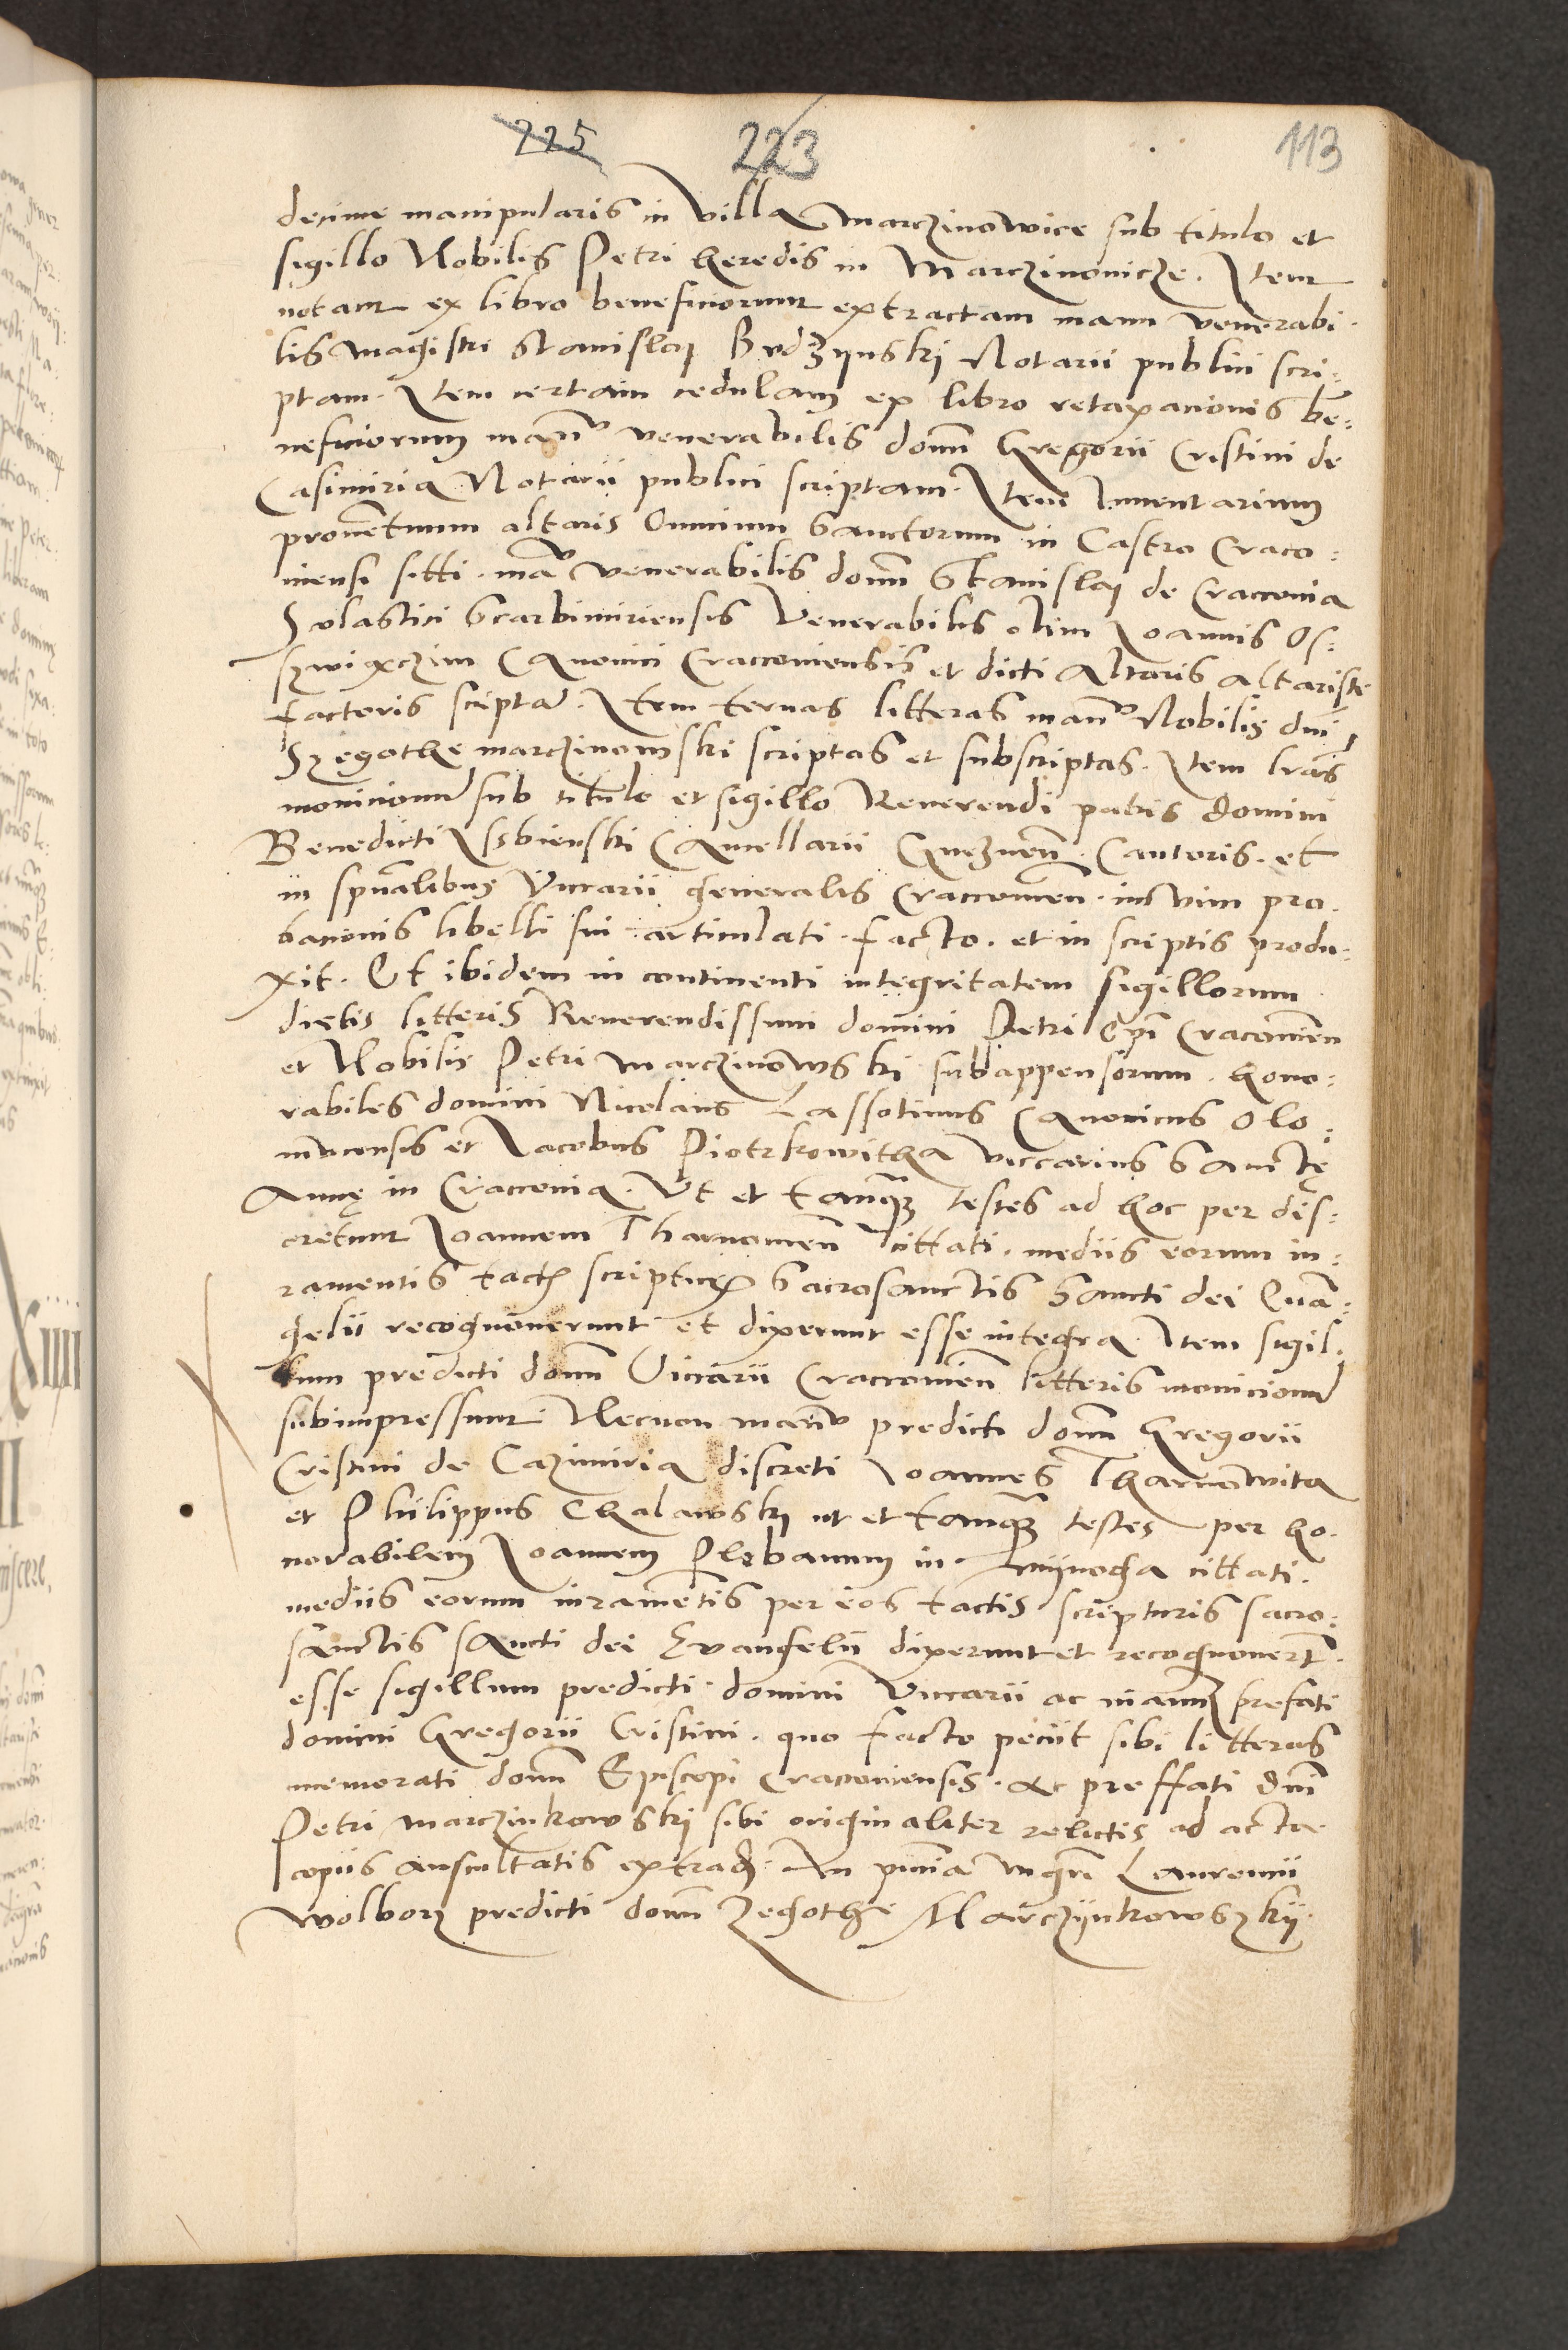 225 223 113
decime manipularis in villa Marczinowice sub titulo et
sigillo Nobilis Petri heredis in Marczinovicze. Item
notam ex libro beneficiorum extractam manu venerabi-
lis magistri Stanislai Budzynski Notarii publici scri-
ptam. Item certam cedulam ex libro retaxacionis be-
neficiorum manu venerabilis domi Gregorii Cristini de
Casimiria Notarii publici scriptam. Item Inventarium
proventuum altaris Omnium Sanctorum in Castro Craco-
viensi sitti. ma venerabilis domi Stanislai de Cracovia
Scolastici Scarbimiriensis Venerabilis olim Joannis Os-
szwiaczim Canonici Cracoviensis et dicti Altaris altariste
factoris scripta. Item ternas litteras manu Nobilis dni
Szegothe marczinowski scriptas et subscriptas. Item lras
monicionum sub titulo et sigillo Reverendi patris domini
Benedicti Isbienski Cancellarii Gneznen. Cantoris. et
in spualibus Vicarii generalis Cracovien. in vim pro-
bacionis libelli sui articulati. facto. et in scriptis produ-
xit. Et ibidem in continenti integritatem sigillorum
dictis litteris Reverendissimi domini Petri Epi Cracovien
et Nobilis Petri Marczinowski subappensorum. hono-
rabiles domini Nicolaus Lassotinus Canonicus Olo-
mucensis et Jacobus Piotrkowitha viccarius Sancte
Anne in Cracovia. Ut et tanquam testes ad hoc per dis-
cretum Joannem Tharnowien cittati. mediis eorum iu-
ramentis tactis scripturis sacrosanctis Sancti dei Evan-
gelii recognoverunt et dixerunt esse integra. Item sigil-
lum predicti domi Vicarii Cracovien litteris monicionum
subimpressum. Necnon manu predicti domi Gregorii
Cristini de Cazimiria discreti Joannes Tharnowita
et Philippus Chalawski ut et tanquam testes per ho-
norabilem Joannem Plebanum in Mynoga cittati.
mediis eorum iuramentis per eos tactis scripturis sacro-
sanctis sancti dei Evangelii dixerunt et recognovert.
esse sigillum predicti domini Viccarii ac manum prefati
domini Gregorii Cristini. quo facto peciit sibi litteras
memorati domi Episcopi Cracoviensis. ac preffati dni
Petri Marczinkowski sibi originaliter relictis ad acta
copiis auscultatis extradi. In Laurencii
Wolborz predicti domi Zegothe Marczynkowszky.